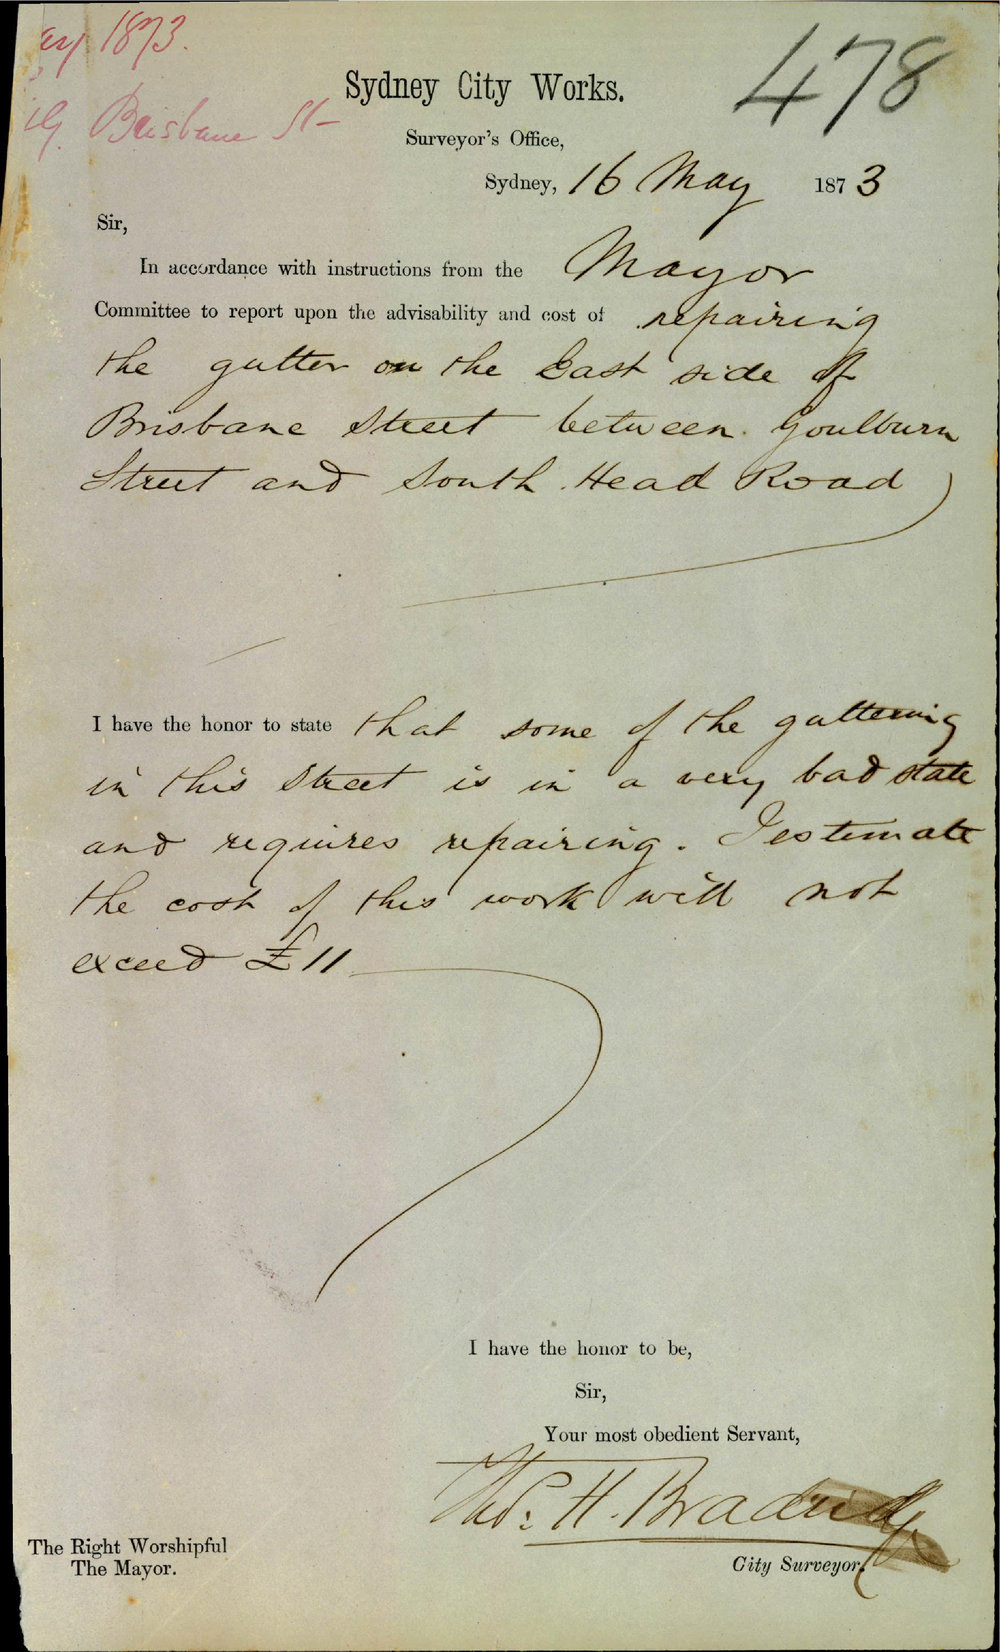 1873.
478
Brisbane St
Sydney City Works.
Surveyor's Office,
Sydney, 16 May 1873
Sir,
In accordance with instructions from the Mayor
Committee to report upon the advisability and cost of repairing
the gutter on the East side of
Brisbane Street between Goulburn
Street and South Head Road
I have the honor to state that some of the guttering
in this Street is in a very bad state
and requires repairing. I estimate
the cost of this work will not
exceed £11
I have the honor to be,
Sir,
Your most obedient Servant,
Thos. H. Bradridge
City Surveyor.
The Right Worshipful
The Mayor.